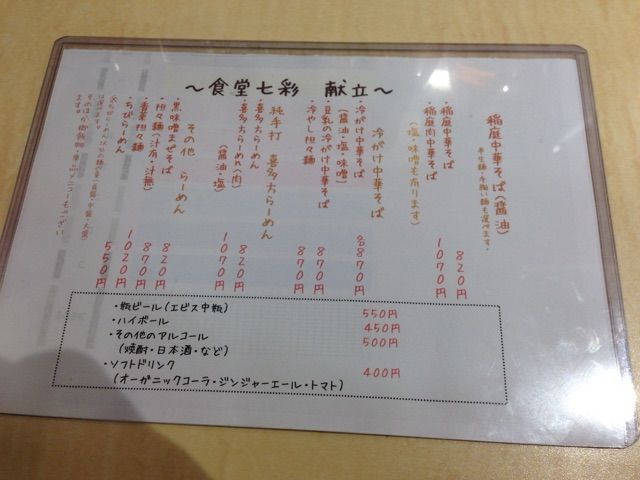 ～食堂七彩　献立～
稲庭中華そば（醤油）
・稲庭中華そば　820円
・稲庭肉中華そば　1070円
（塩・味噌も有ります）
冷がけ中華そば
・冷がけ中華そば　870円
（醤油・塩・味噌）
・豆乳の冷がけ中華そば　870円
・冷やし担々麺　870円
純手打　喜多方らーめん
・喜多方らーめん　820円
・喜多方らーめん（肉）　1070円
（醤油・塩）
その他　らーめん
・黒味噌まぜそば　820円
・担々麺（汁有・汁無）　870円
・香菜担々麺　1020円
・ちびらーめん　550円
・瓶ビール（エビス中瓶）　550円
・ハイボール　450円
・その他のアルコール　500円
（焼酎・日本酒・など）
・ソフトドリンク　400円
（オーガニックコーラ・ジンジャーエール・トマト）